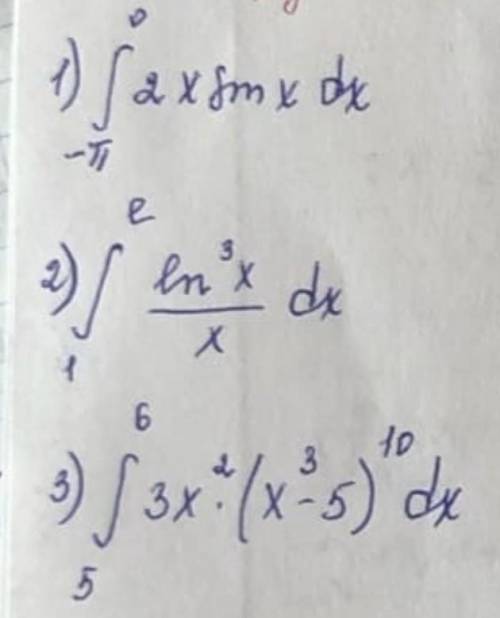 1) ∫₋π⁰ 2x sin x dx
2) ∫₁ᵉ ln³x / x dx
3) ∫₅⁶ 3x² · (x³ - 5)¹⁰ dx